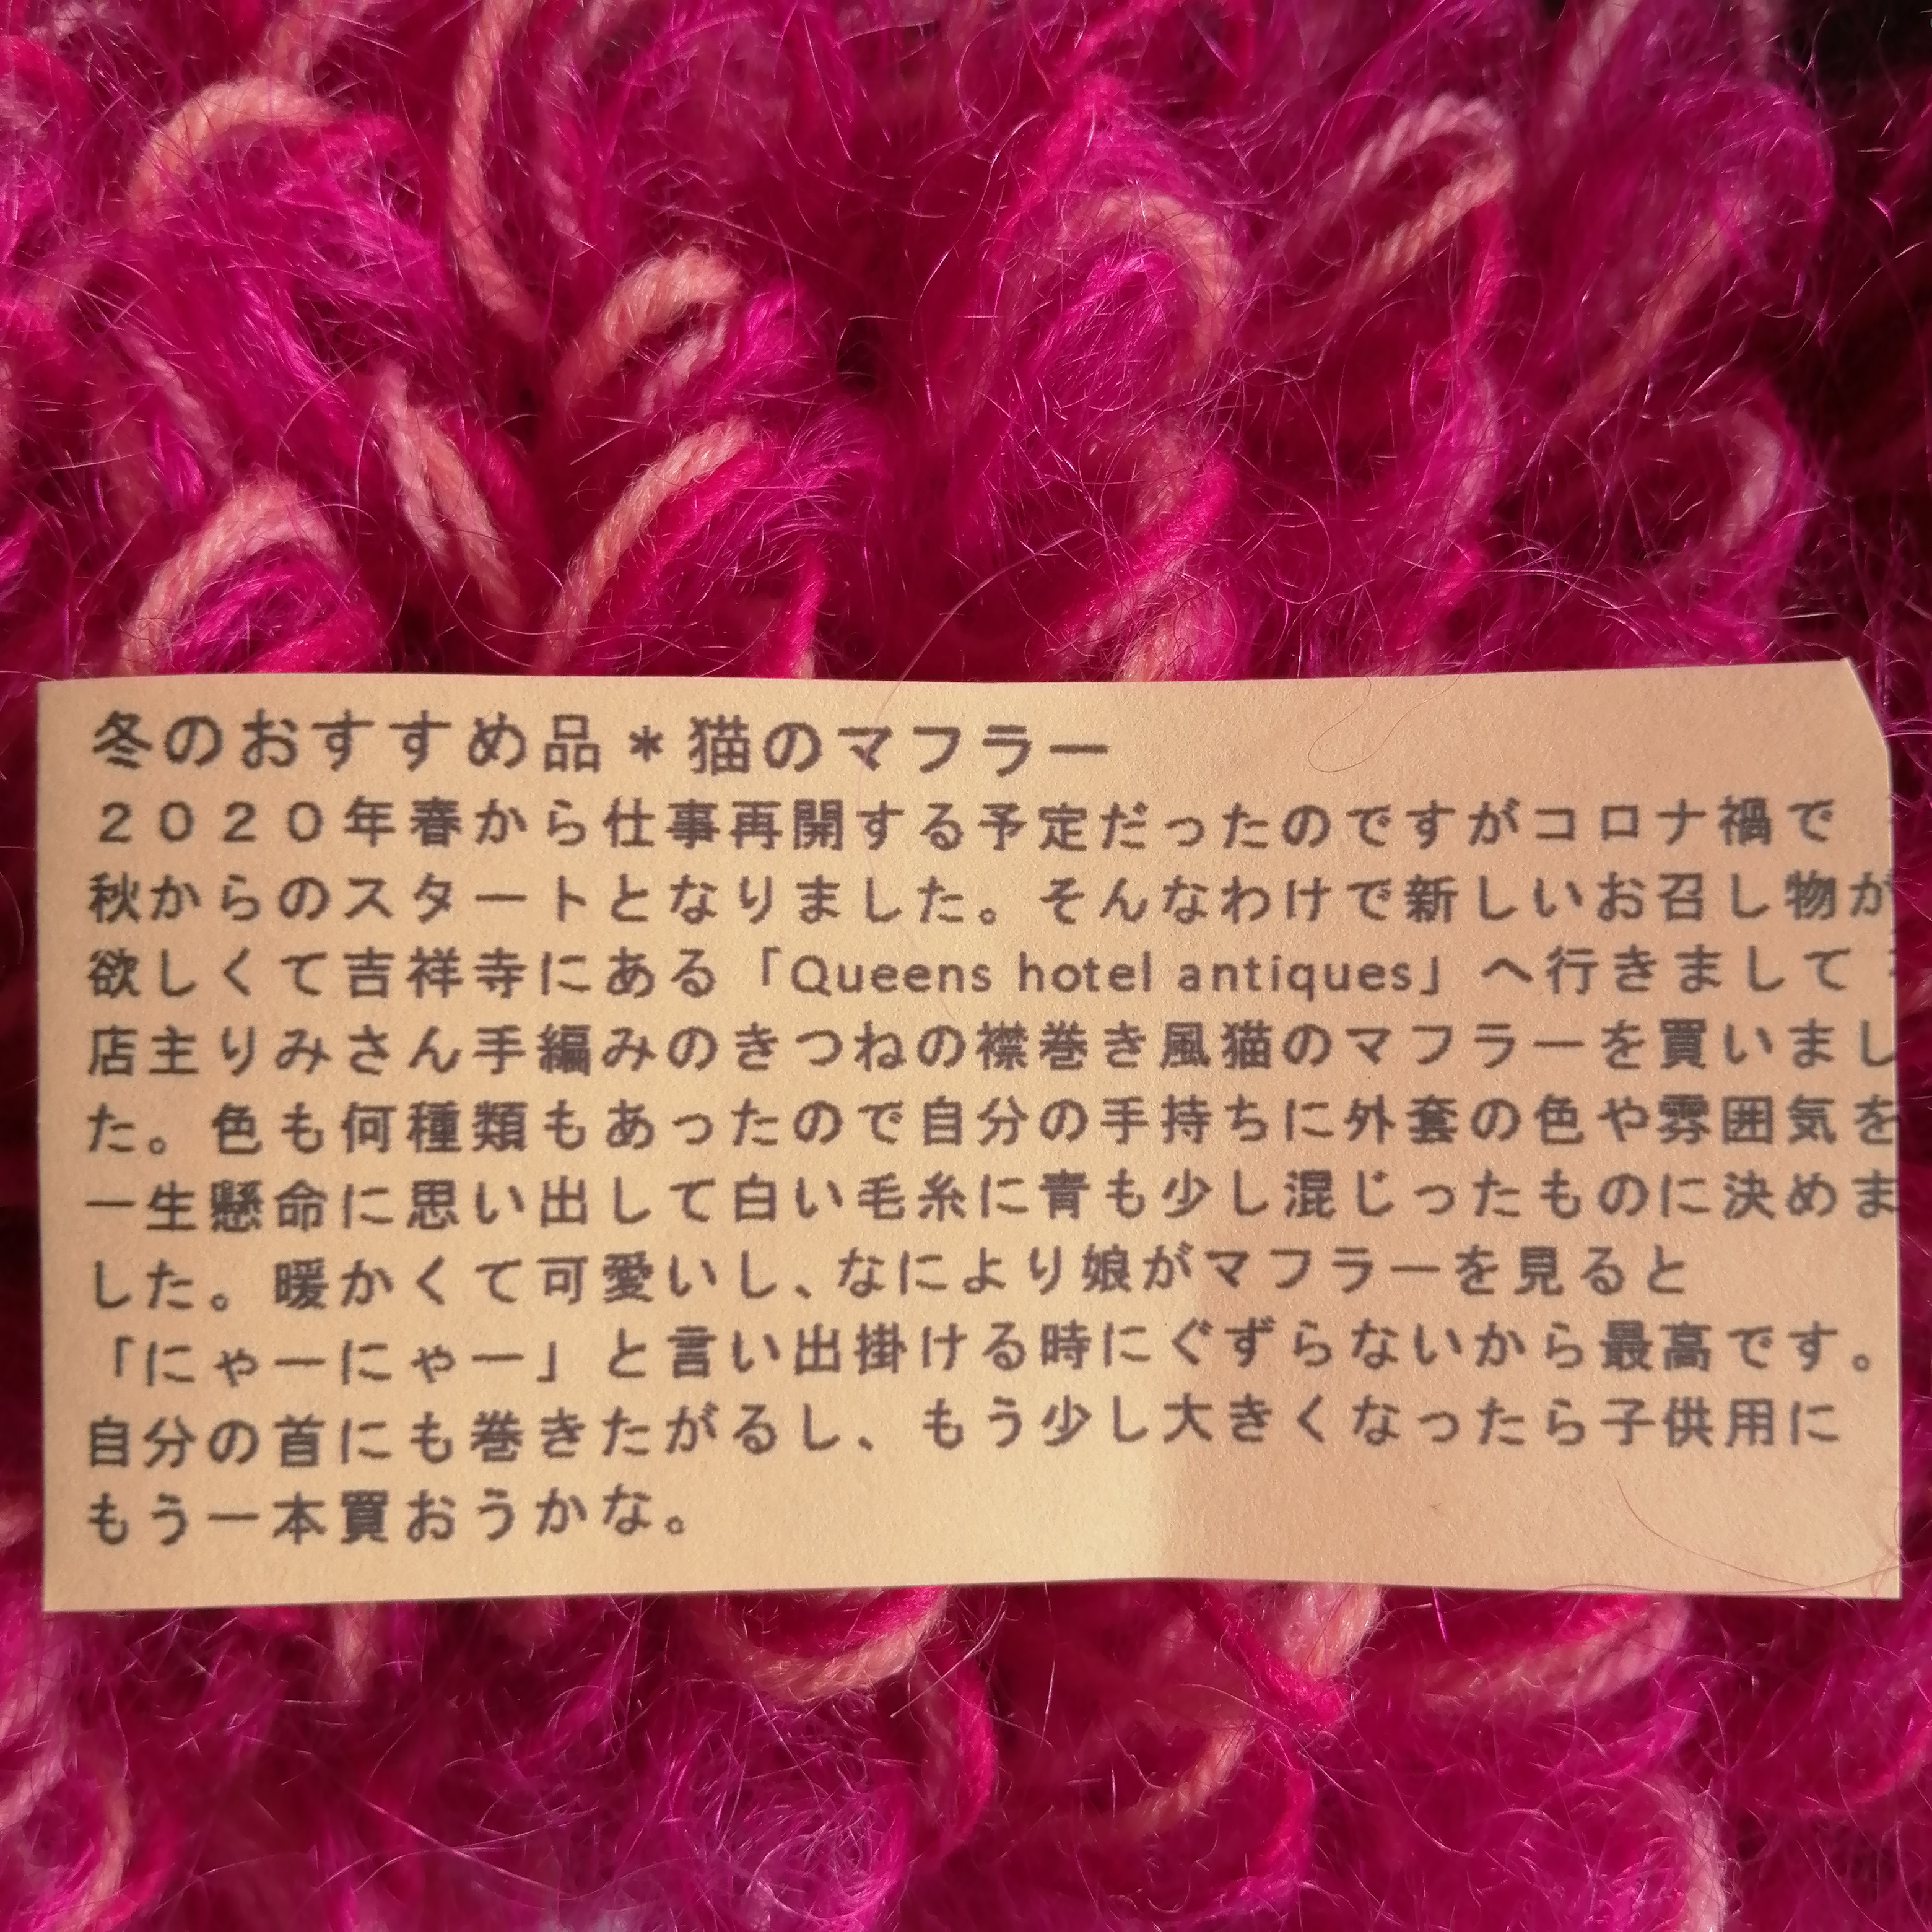 冬のおすすめ品＊猫のマフラー
２０２０年春から仕事再開する予定だったのですがコロナ禍で
秋からのスタートとなりました。そんなわけで新しいお召し物が
欲しくて吉祥寺にある「Queens hotel antiques」へ行きまして
店主りみさん手編みのきつねの襟巻き風猫のマフラーを買いまし
た。色も何種類もあったので自分の手持ちに外套の色や雰囲気を
一生懸命に思い出して白い毛糸に青も少し混じったものに決めま
した。暖かくて可愛いし、なにより娘がマフラーを見ると
「にゃーにゃー」と言い出掛ける時にぐずらないから最高です。
自分の首にも巻きたがるし、もう少し大きくなったら子供用に
もう一本買おうかな。